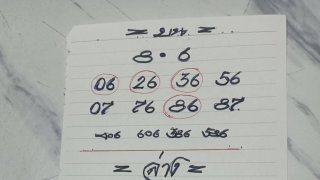 = บน =
8 · 6
06 26 36 56
07 76 86 87
406 606 386 586
= ล่าง =